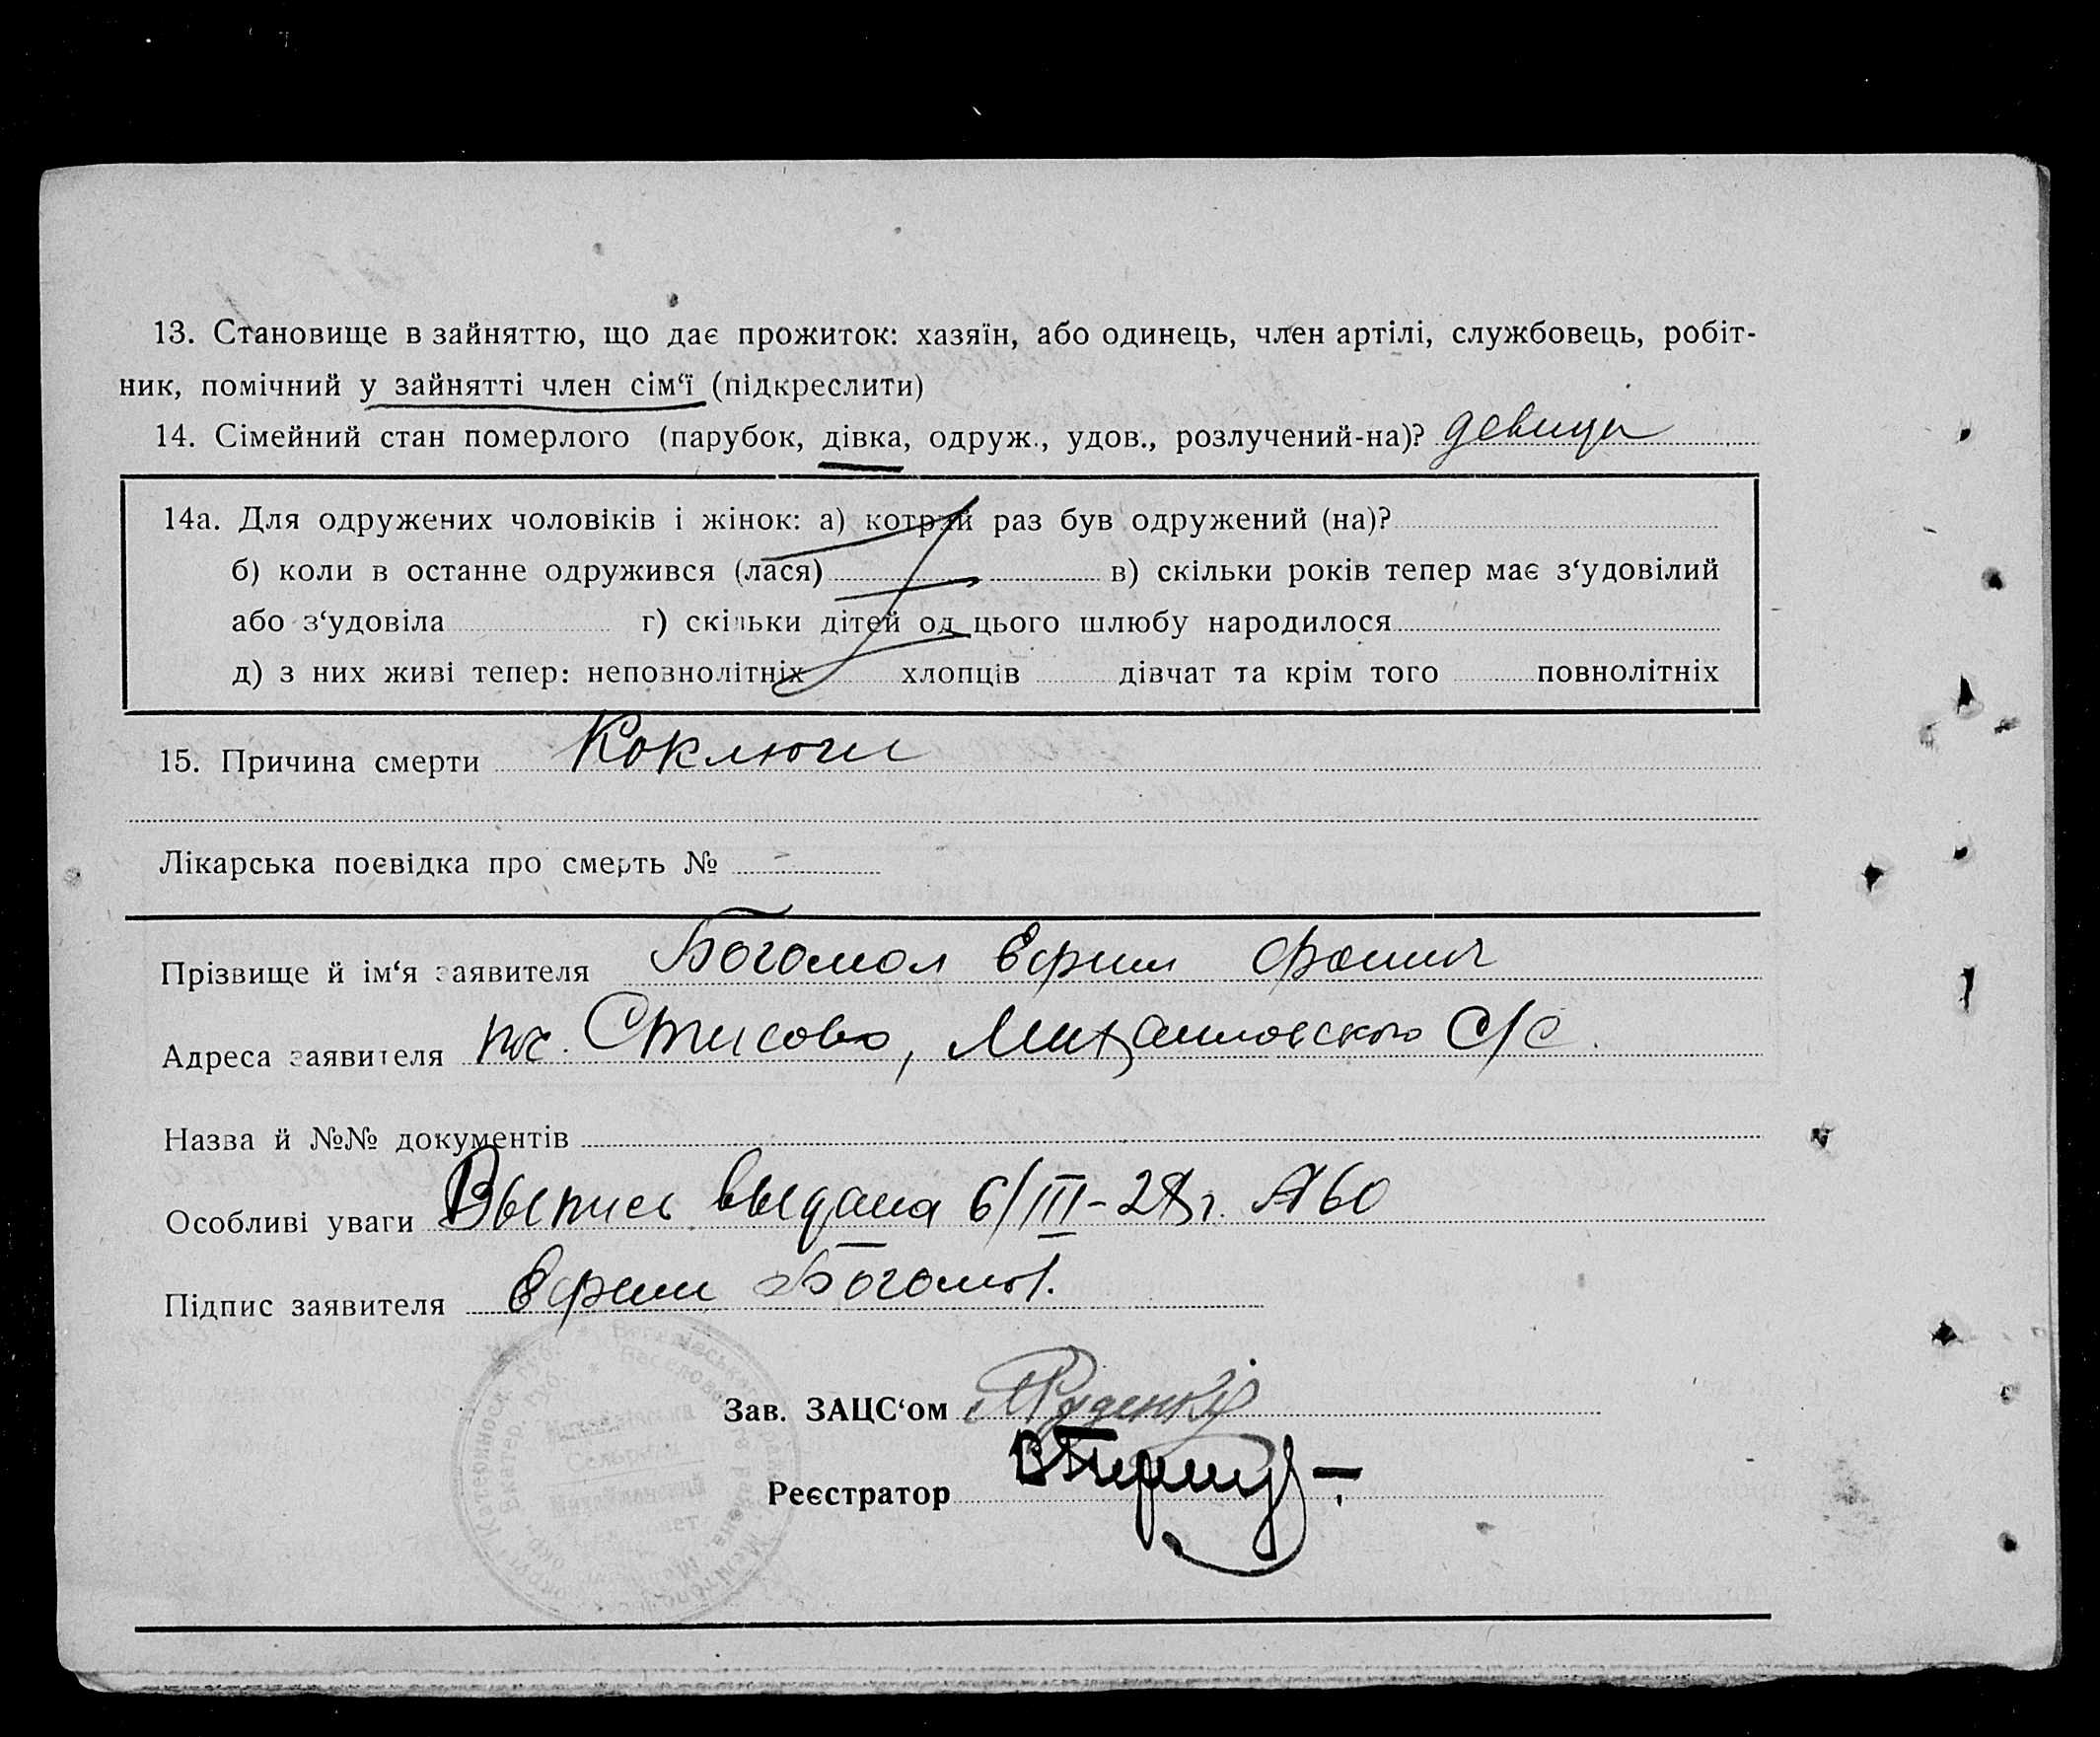 13. Становище в зайняттю, що дає прожиток: хазяїн, або одинець, член артілі, службовець, робіт-
ник, помічний у зайнятті член сім'ї (підкреслити)
14. Сімейний стан померлого (парубок, дівка, одруж., удов., розлучений-на)? девица
14а. Для одружених чоловіків і жінок: а) котрий раз був одружений (на)?
б) коли в останне одружився (лася) в) скільки років тепер має з'удовілий
або з'удовіла г) скільки дітей од цього шлюбу народилося
д) з них живі тепер: неповнолітніх хлопців дівчат та крім того повнолітніх
15. Причина смерти Коклюш
Лікарська посвідка про смерть №
Прізвище й ім'я заявителя Богомол Ефим
Адреса заявителя пос. Михайловского С/С.
Назва й №№ документів
Особливі уваги Выпись выдана 6/III-28г. №60
Підпис заявителя Ефим Богомол.
Зав. ЗАЦС'ом Руденко
Реєстратор